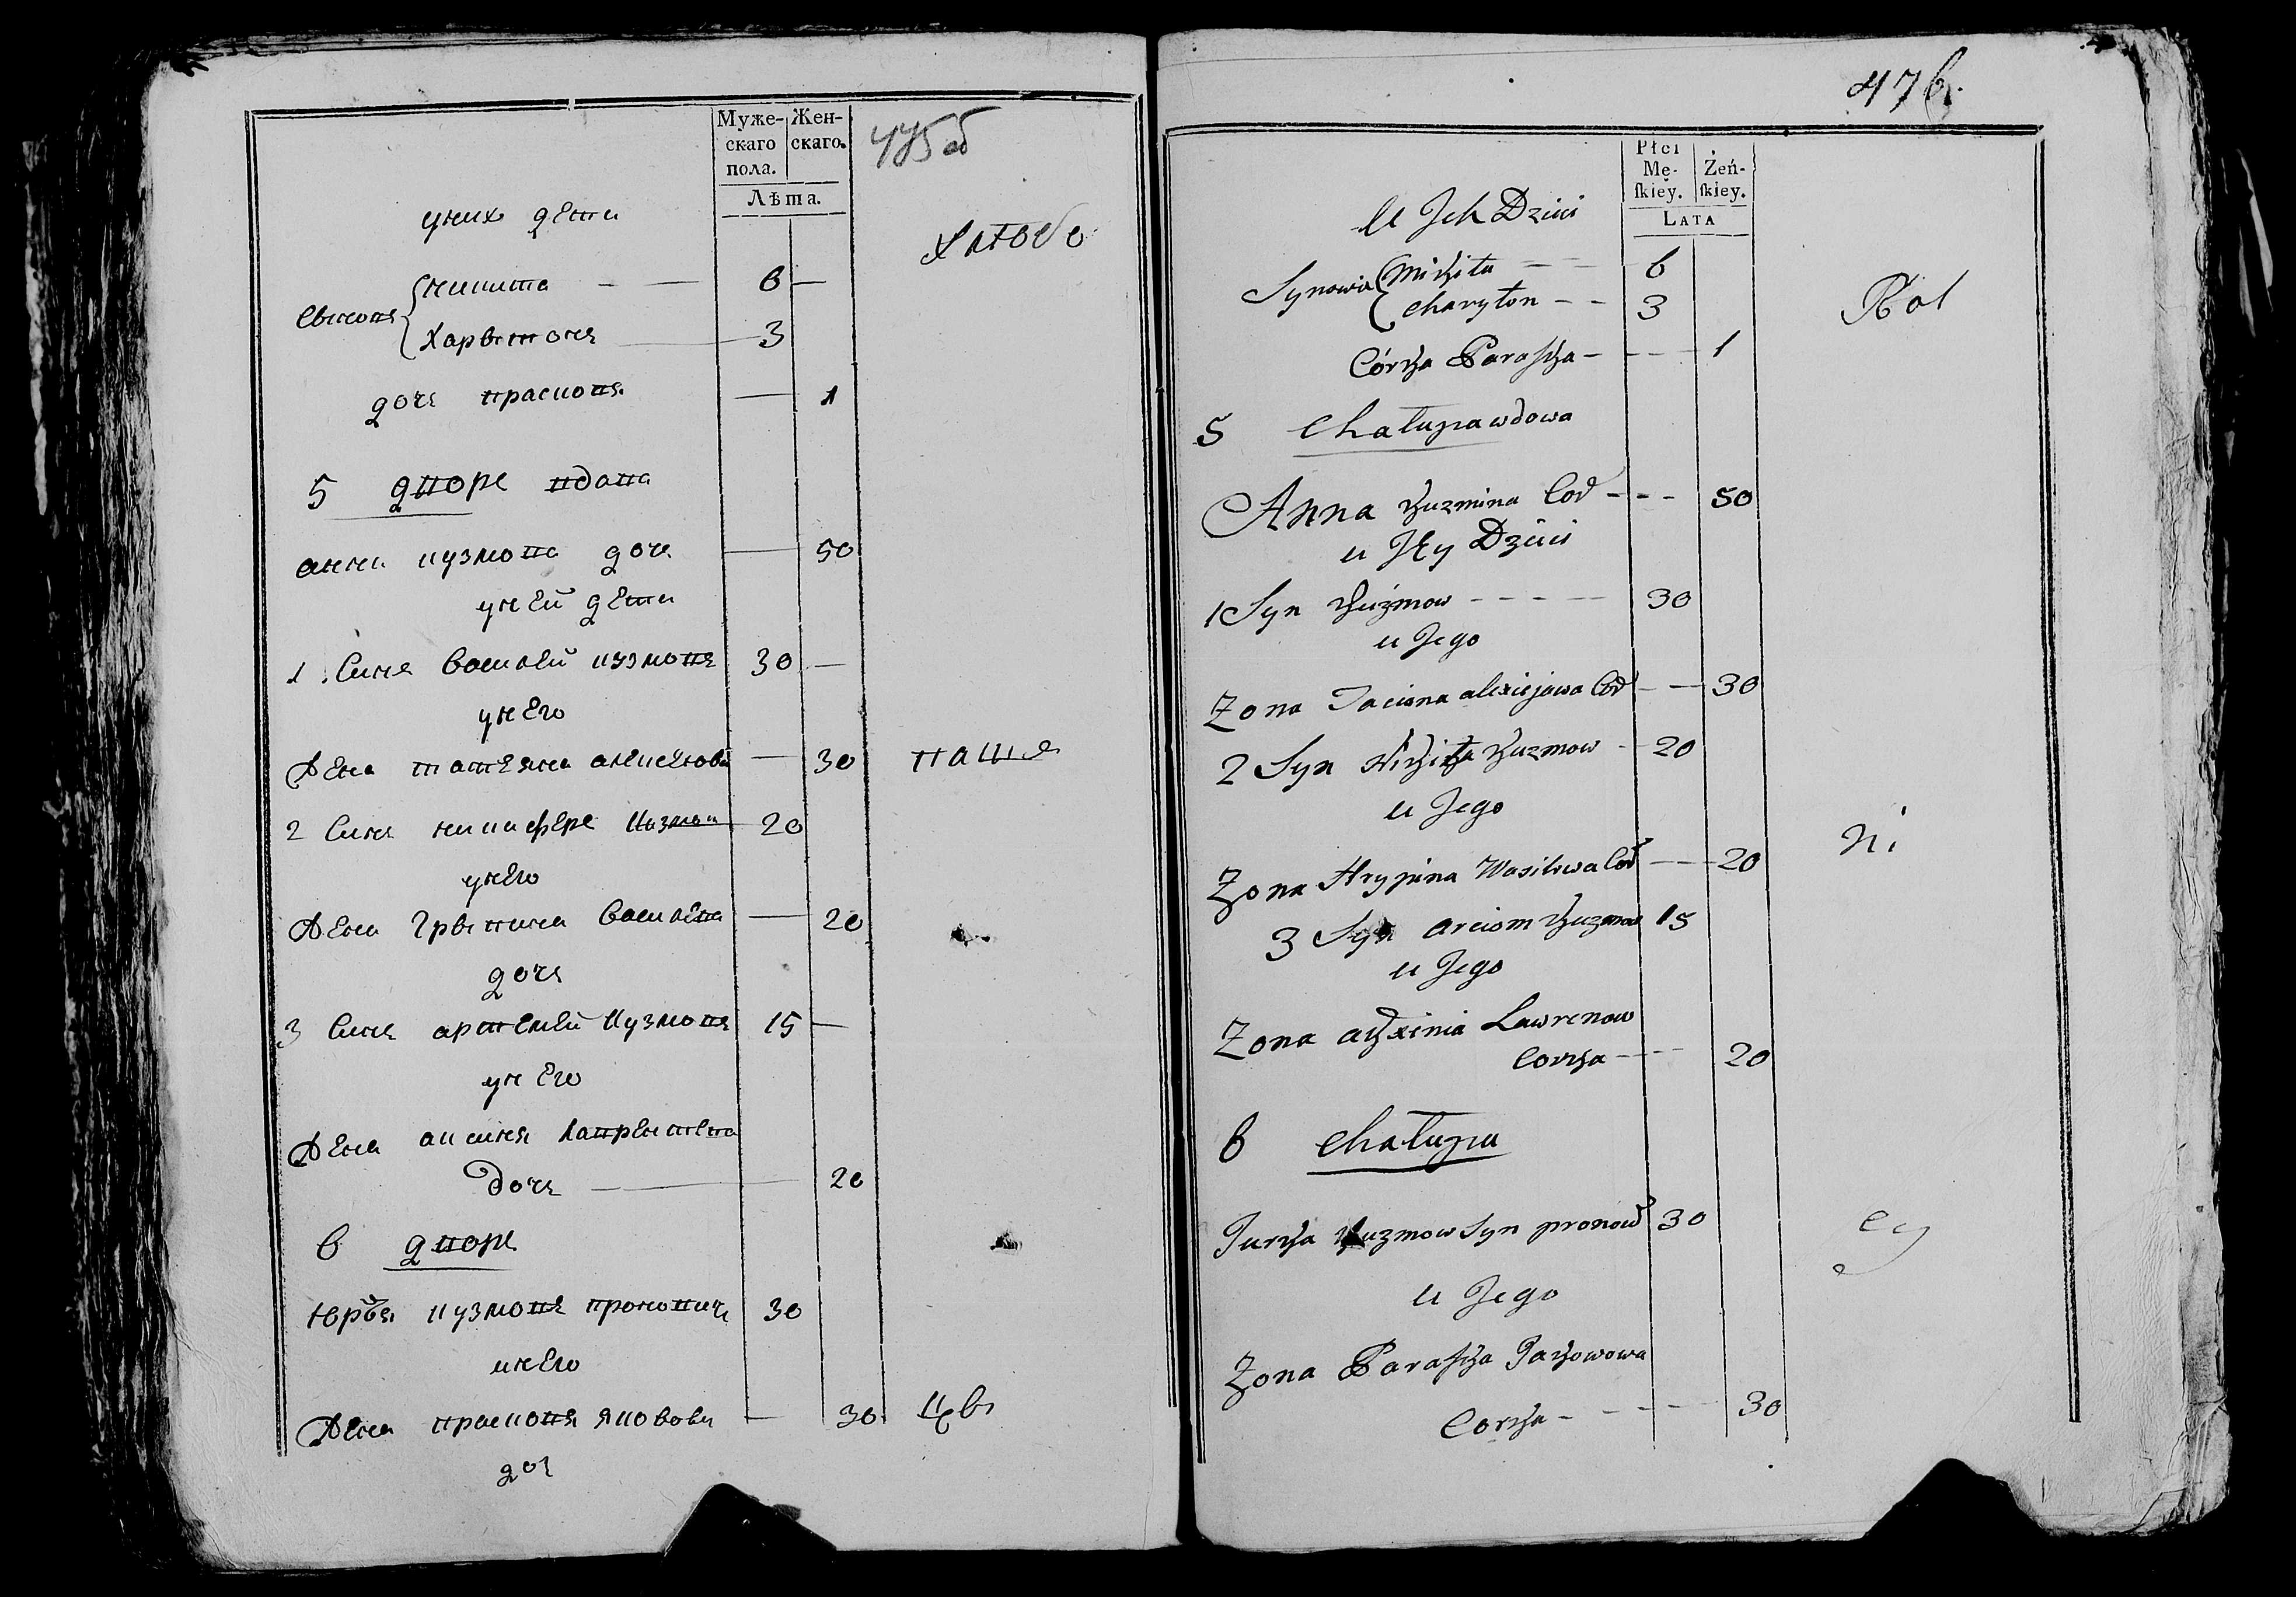 Муже-
скаго
пола.
Жен-
скаго.
Лѣта.
уних дети
Никита 6
Харытонъ 3
дочь Прасковя 1
5 дворъ вдова
анна кузмова дочь 50
уней дети
1 Синъ василей кузмовъ 30
унего
Жена татеяна алексеева 30
2 Синъ никифоръ кузмов 20
унего
Жена Грыпина василева 20
дочь
3 Синъ артемей кузмовъ 15
унего
Жена аксиня лаврентева
дочь 20
6 дворъ
юрья кузмовъ проновичъ 30
инего
Жена прасковя яковова 30
доч
476.
Płci
Mę-
ſkiey.
Żeń-
ſkiey.
LATA
U Jch Dzieci
Synowie Mikita 6
Charyton 3
Córka Paraſka 1
5 Chałupa wdowa
Anna Kuzmina Cor 50
u Jey Dzieci
1 Syn Kuźmow 30
u Jego
Zona Taciana alexiejowa Cor 30
2 Syn Kuzmow 20
u Jego
Zona Hrypina Wasilewa Cor 20
3 Syn arciom Kuzmow 15
u Jego
Zona axinia Lawrenow
Corka 20
6 Chałupa
Jurka Kuzmow Syn pronow 30
u Jego
Zona Paraſka Jakowowa
Corka 30
ni
ey